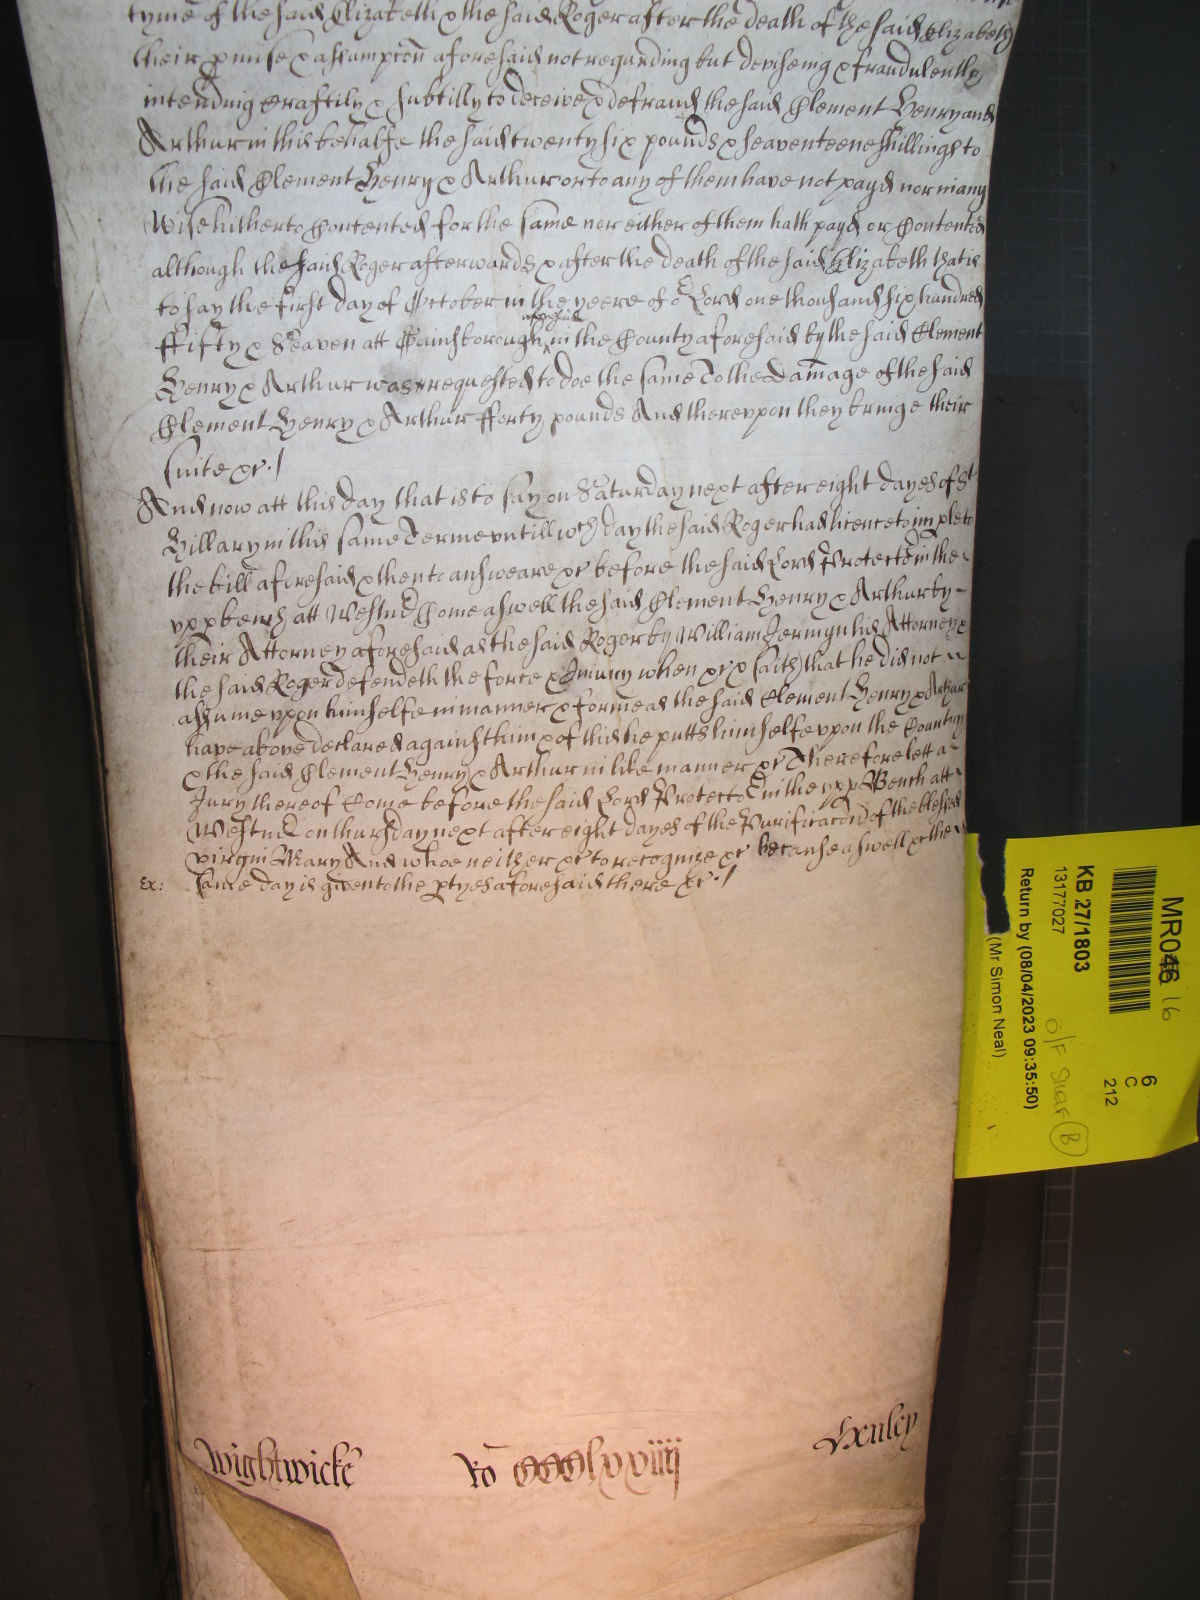 tyme of the said Elizabeth & the said Roger after the death of the said Elizabeth
their pmise & assumpcon aforesaid not regarding but deviseing & fraudulently
intending craftily & subtilly to deceive & defraud the said Clement Henry and
Arthur in this behalfe the said twenty six pounds & seaventeene shillings to
the said Clement Henry & Arthur or to any of them have not payd nor in any
wise hitherto Contented for the same nor either of them hath payd or Contented
although the said Roger afterwards & after the death of the said Elizabeth that is
to say the first day of October in the yeere of or Lord one thousand six hundred
ffifty & Seaven att Gainsborough aforesaid in the County aforesaid by the said Clement
Henry & Arthur was requested to doe the same To the Damage of the said
Clement Henry & Arthur fforty pounds And thereupon they bringe their
suite &c./
And now att this day that is to say on Saturday next after eight dayes of St
Hillary in this same Terme untill wch day the said Roger had licence to imparle to
the bill aforesaid & then to answeare &c before the said Lord Protector in the
upp bench att Westmr Come aswell the said Clement Henry & Arthur by
their Attorney aforesaid as the said Roger by William Jermyn his Attorney &
the said Roger defendeth the force & Iniury when &c & saith that he did not
assume uppon himselfe in manner & forme as the said Clement Henry & Arthur
have above declared against him & of this he putts himselfe uppon the Country
& the said Clement Henry & Arthur in like manner &c Therefore lett a
Jury thereof Come before the said Lord Protector in the upp Bench att
Westmr on thursday next after eight dayes of the Purificacon of the blessed
virgin Mary And whoe neither &c to recognize &c because aswell &c the
Ex: same day is given to the ptyes aforesaid there &c./
Wightwicke Ro CCClxxiiij Henley
MR046 16
KB 27/1803
13177027
Return by (08/04/2023 09:35:50)
(Mr Simon Neal)
6
C
212
O/F
B